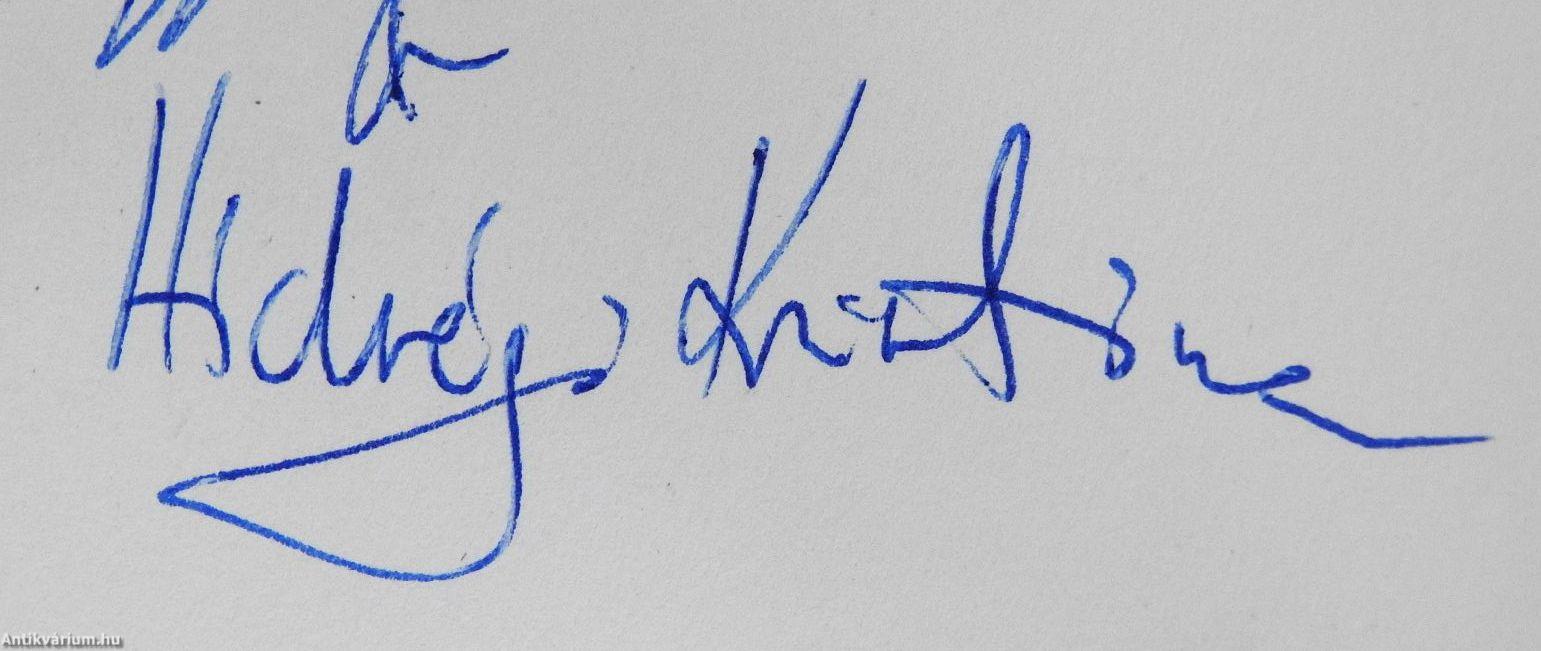 Hidvégi Krisztina
Antikvárium.hu